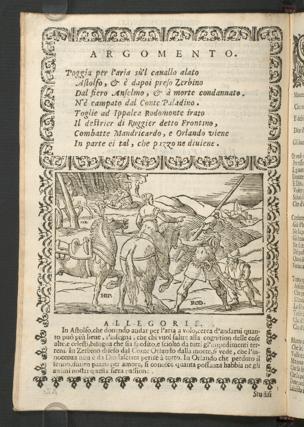 ARGOMENTO.
Poggia per l'aria sù'l cauallo alato
Astolfo, & è dapoi preso Zerbino
Dal fiero Anselmo, & à morte condannato.
N'è campato dal Conte Paladino.
Toglie ad Ippalca Rodomonte irato
Il destrier di Ruggier detto Frontino,
Combatte Mandricardo, e Orlando viene
In parte ei tal, che pazzo ne diuiene.
HIP. ROD.
ALLEGORIE.
In Astolfo, che douendo andar per l'aria a volo, cerca d'andarui quan-
to può più lieue, s'insegna, che chi vuol salire alla cognition delle cose
alte, e celesti, bisogna che sia spedito, e sciolto da tutti gl'impedimenti ter-
reni. In Zerbino difeso dal Conte Orlando dalla morte, si vede, che l'in-
nocenza non è da Dio lasciata perire à torto. In Orlando che perduto il
senno, pazzo per amore, si conosce quanta possanza habbia ne gli
animi nostri questa fiera passione.
Stu